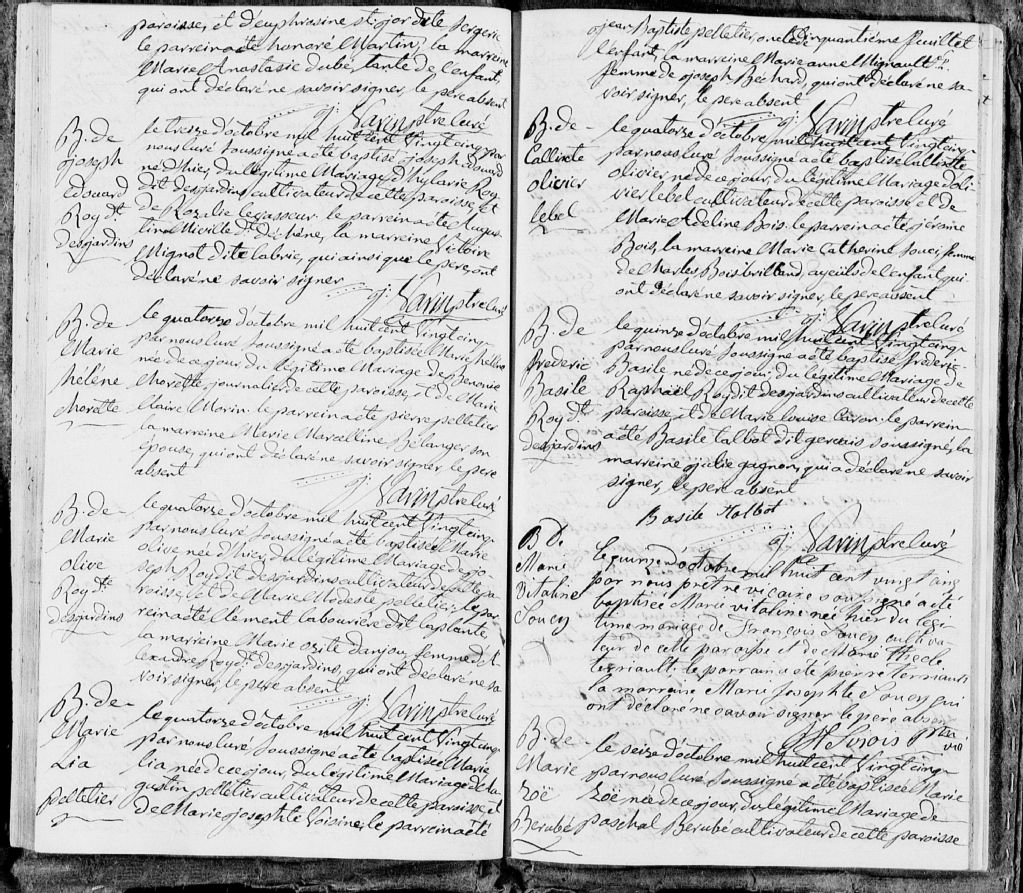 paroisse, et d'euphrosine st. jor dite sergerie
le parrein a été honoré Martin, la marreine
Marie Anastasie dubé, tante de l'enfant,
qui ont déclaré ne savoir signer, le pere absent
j: Varin ptre curé
B. de
joseph
Edouard
Roy dt.
desjardins
le treize d'octobre mil huit cent vingt cinq par
nous curé soussigné a été baptisé joseph Edouard
né d'hier, du légitime Mariage d'hylarie Roy
dit desjardins cultivateur de cette paroisse, et
de Rozalie levasseur. le parrein a été Augus-
tin Miville dt. déchêne, la marreine Victoire
Mignot dite labrie, qui ainsi que le pere, ont
déclaré ne savoir signer
j: Varin ptre curé
B. de
Marie
hélène
Chorette
le quatorze d'octobre mil huit cent vingt cinq
par nous curé soussigné a été baptisée Marie hélène
née de ce jour, du légitime Mariage de Benonie
Chorette journalier de cette paroisse, et de Marie
Claire Morin. le parrein a été pierre pelletier
la marreine Marie Marcelline Bélanger son
épouse, qui ont déclaré ne savoir signer, le pere
absent
j: Varin ptre curé
B. de
Marie
olive
Roy dte.
desjardins
le quatorze d'octobre mil huit cent vingt cinq
par nous curé soussigné a été baptisée Marie
olive née d'hier, du légitime Mariage de jo-
seph Roy dit desjardins cultivateur de cette pa-
roisse, et de Marie Modeste pelletier, le par-
rein a été Clement labourière dit laplante,
la marreine Marie ozite danjou, femme d'A-
lexandre Roy dt. desjardins, qui ont déclaré ne sa-
voir signer, le pere absent
j: Varin ptre curé
B. de
Marie
Lia
pelletier
le quatorze d'octobre mil huit cent vingt cinq
par nous curé soussigné a été baptisée Marie
lia née de ce jour, du légitime Mariage d'Au-
gustin pelletier cultivateur de cette paroisse, et
de Marie josephte Voisine, le parrein a été
Cinquantième feuillet
jean Baptiste pelletier, oncle de
l'enfant, la marreine Marie anne Mignault
femme de joseph Béchard, qui ont déclaré ne sa-
voir signer, le pere absent
j: Varin ptre curé
B. de
Callixte
olivier
lebel
le quatorze d'octobre mil huit cent vingt cinq
par nous curé soussigné a été baptisé Callixte
olivier né de ce jour, du légitime Mariage d'oli-
vier lebel cultivateur de cette paroisse et de
Marie Adeline Bois. le parrein a été jérôme
Bois, la marreine Marie Catherine Souci, femme
de Charles Boisbrilland, ayeuls de l'enfant qui
ont déclaré ne savoir signer, le pere absent
j: Varin ptre curé
B. de
frederic
Basile
Roy dt.
desjardins
le quinze d'octobre mil huit cent vingt cinq
par nous curé soussigné a été baptisé frederic
Basile né de ce jour, du légitime Mariage de
Raphaël Roy dit desjardins cultivateur de cette
paroisse, et de Marie louise Caron. le parrein
a été Basile talbot dit gervais soussigné, la
marreine julie gagnon, qui a déclaré ne savoir
signer, le pere absent
Basile talbot
j: Varin ptre curé
B. de
Marie
Vitaline
Soucy
le quinze d'octobre mil huit cent vingt cinq
par nous prêtre vicaire soussigné a été
baptisée Marie vitaline née hier du légi-
time mariage de François Soucy cultiva-
teur de cette paroisse et de Marie Thecle
terriault. le parrain a été pierre terriault
la marraine Marie Josephte Soucy qui
ont déclaré ne savoir signer le père absent
Sirois ptre
vic
B. de
Marie
Zoë
Berubé
le seize d'octobre mil huit cent vingt cinq
par nous curé soussigné a été baptisée Marie
Zoë née de ce jour, du légitime Mariage de
paschal Berubé cultivateur de cette paroisse